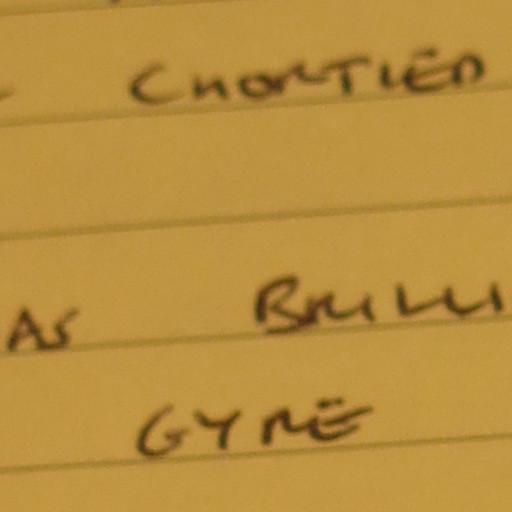 CHORTLED
AS BRILLI
GYRE